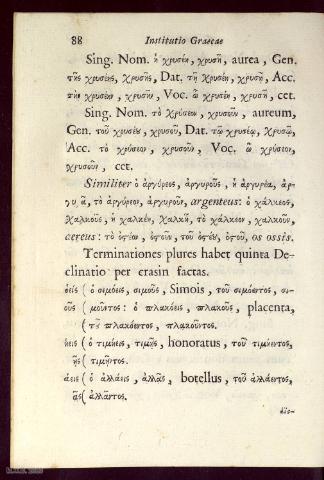 88 Institutio Graecae
Sing. Nom. ἡ χρυσέη, χρυσῆ, aurea, Gen.
τῆς χρυσέης, χρυσῆς, Dat. τῇ χρυσέῃ, χρυσῇ, Acc.
τὴν χρυσέην, χρυσῆν, Voc. ὦ χρυσέη, χρυσῆ, cet.
Sing. Nom. τὸ χρύσεον, χρυσοῦν, aureum,
Gen. τοῦ χρυσέου, χρυσοῦ, Dat. τῷ χρυσέῳ, χρυσῷ,
Acc. τὸ χρύσεον, χρυσοῦν, Voc. ὦ χρύσεον,
χρυσοῦν, cet.
Similiter ὁ ἀργύρεος, ἀργυροῦς, ἡ ἀργυρέα, ἀρ-
γυρᾶ, τὸ ἀργύρεον, ἀργυροῦν, argenteus: ὁ χάλκεος,
χαλκοῦς, ἡ χαλκέη, χαλκῆ, τὸ χάλκεον, χαλκοῦν,
aereus: τὸ ὀστέον, ὀστοῦν, τοῦ ὀστέου, ὀστοῦ, os ossis.
Terminationes plures habet quinta De-
clinatio per crasin factas.
όεις (ὁ σιμόεις, σιμοῦς, Simois, τοῦ σιμόεντος, σι-
οῦς (μοῦντος: ὁ πλακόεις, πλακοῦς, placenta,
(τοῦ πλακόεντος, πλακοῦντος.
ήεις (ὁ τιμήεις, τιμῆς, honoratus, τοῦ τιμήεντος,
ῆς (τιμῆντος.
άεις (ὁ ἀλλάεις, ἀλλᾶς, botellus, τοῦ ἀλλάεντος,
ᾶς (ἀλλᾶντος.